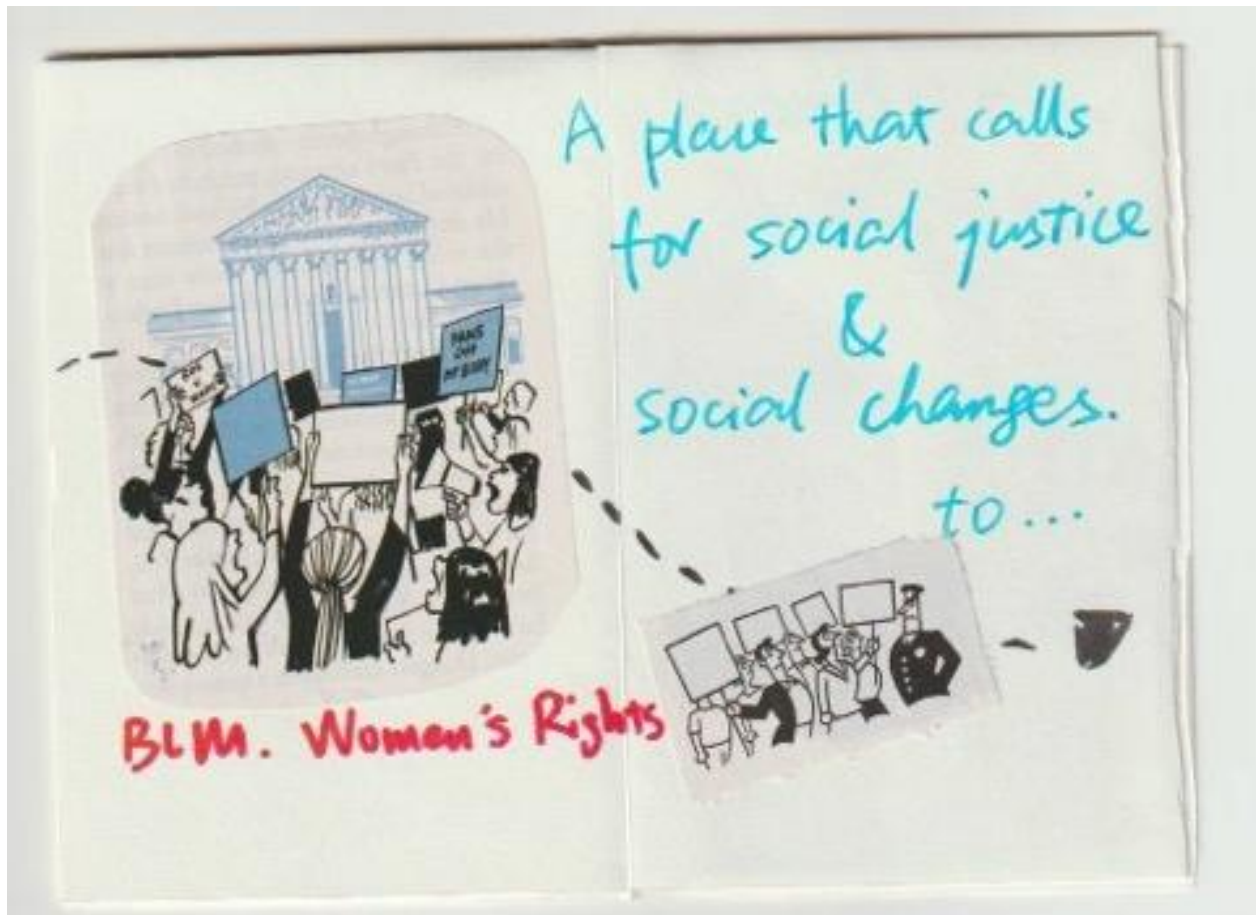 A place that calls
for social justice
&
social changes.
to...
HANDS
OFF
MY BODY
BLM. Women's Rights